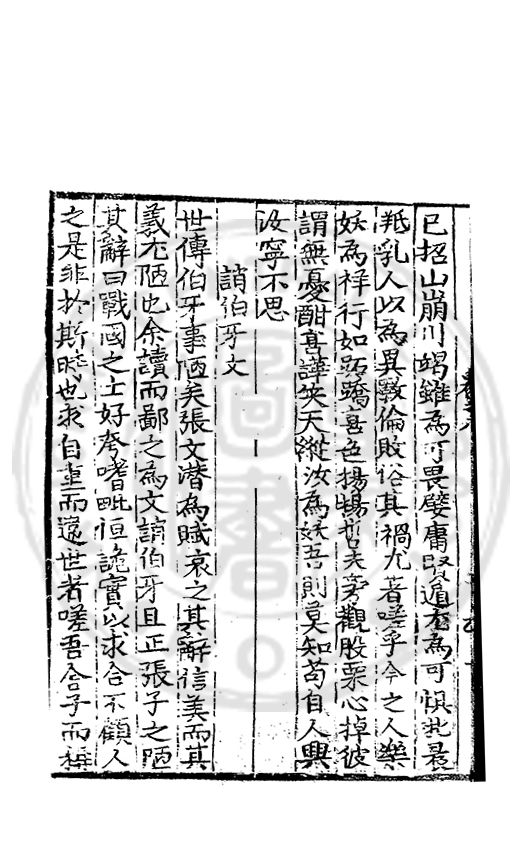 已招山崩川竭雖為可畏嬖庸賢逭尤為可惧牝晨
羝乳人以為異斁倫敗俗其禍尤著嗟乎今之人樂
妖為祥行如跖蹻喜色揚揚哲夫旁觀股栗心掉彼
謂無憂酣喜譁笑天縱汝為妖吾則莫知苟自人興
汝寧不思
誚伯牙文
世傳伯牙事陋矣張文潜為賦哀之其辭信美而其
義尤陋也余讀而鄙之為文誚伯牙且正張子之陋
其辭曰戰國之士好夸嗜毗恒詭實以求合不顧人
之是非扵斯時也求自重而遠世者嗟吾舍子而